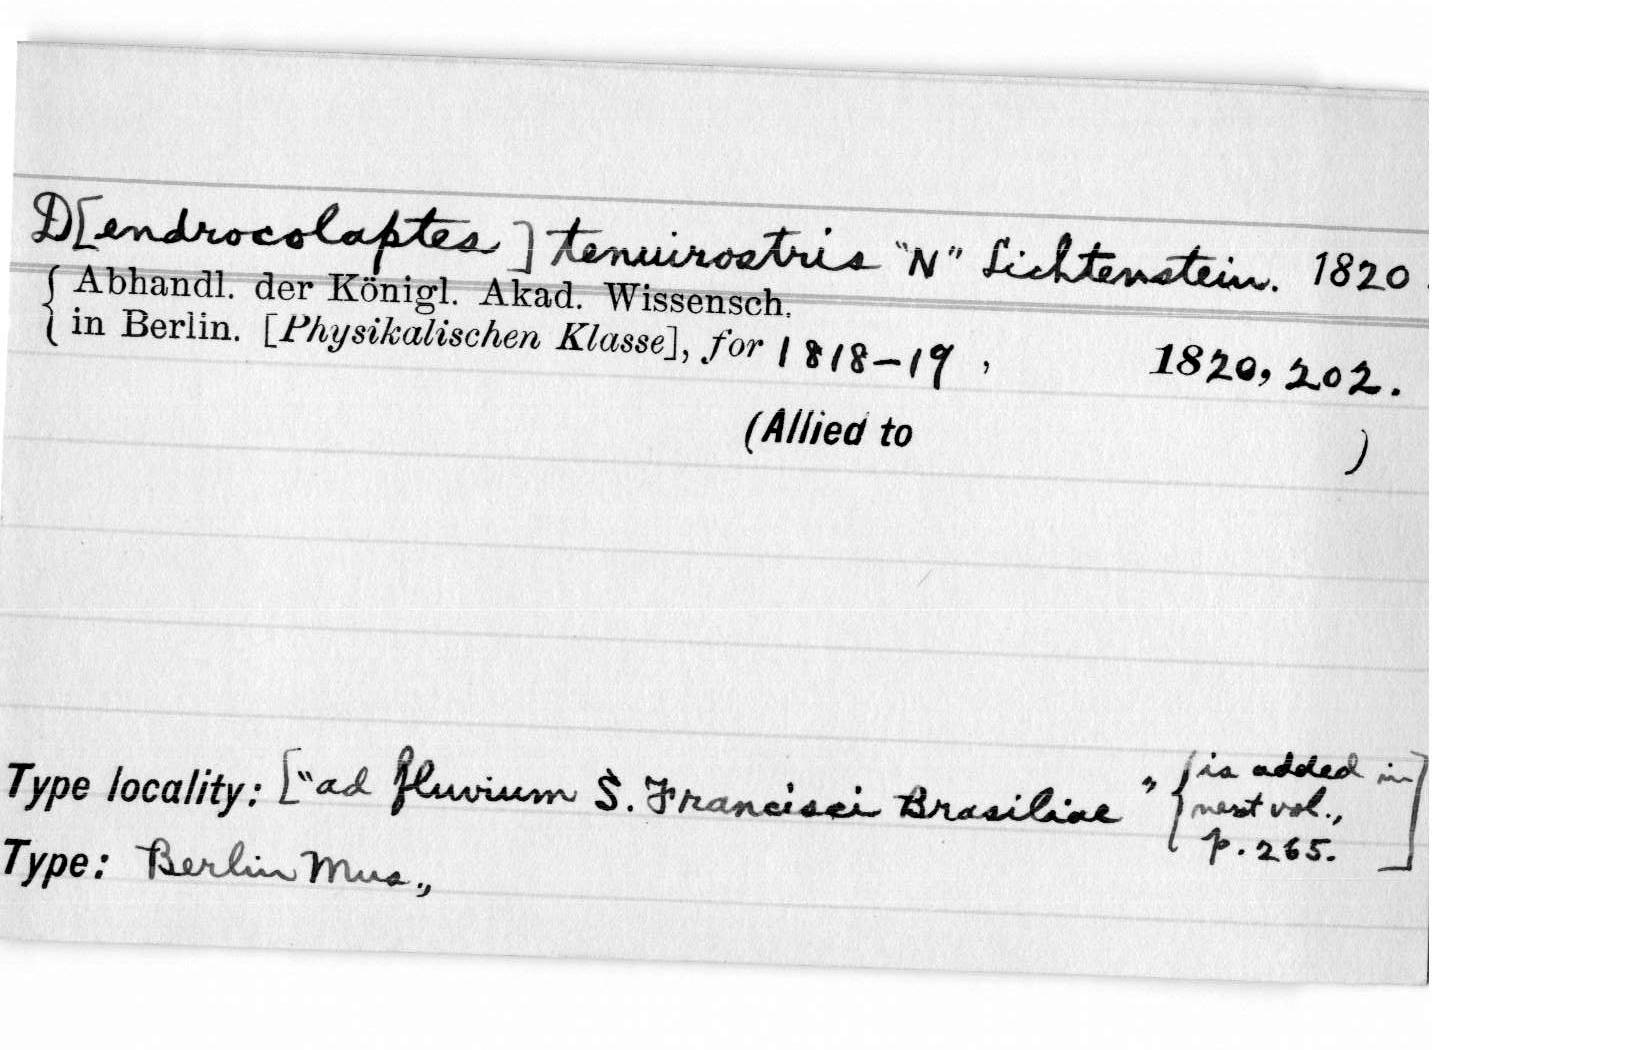 D[endrocolaptes] tenuirostris "N" Lichtenstein. 1820.
Abhandl. der Königl. Akad. Wissensch.
in Berlin. [Physikalischen Klasse], for 1818–19, 1820, 202.
(Allied to )
Type locality: ["ad fluvium S. Francisci Brasiliae" {is added in
next vol.,
p. 265.]
Type: Berlin Mus.,